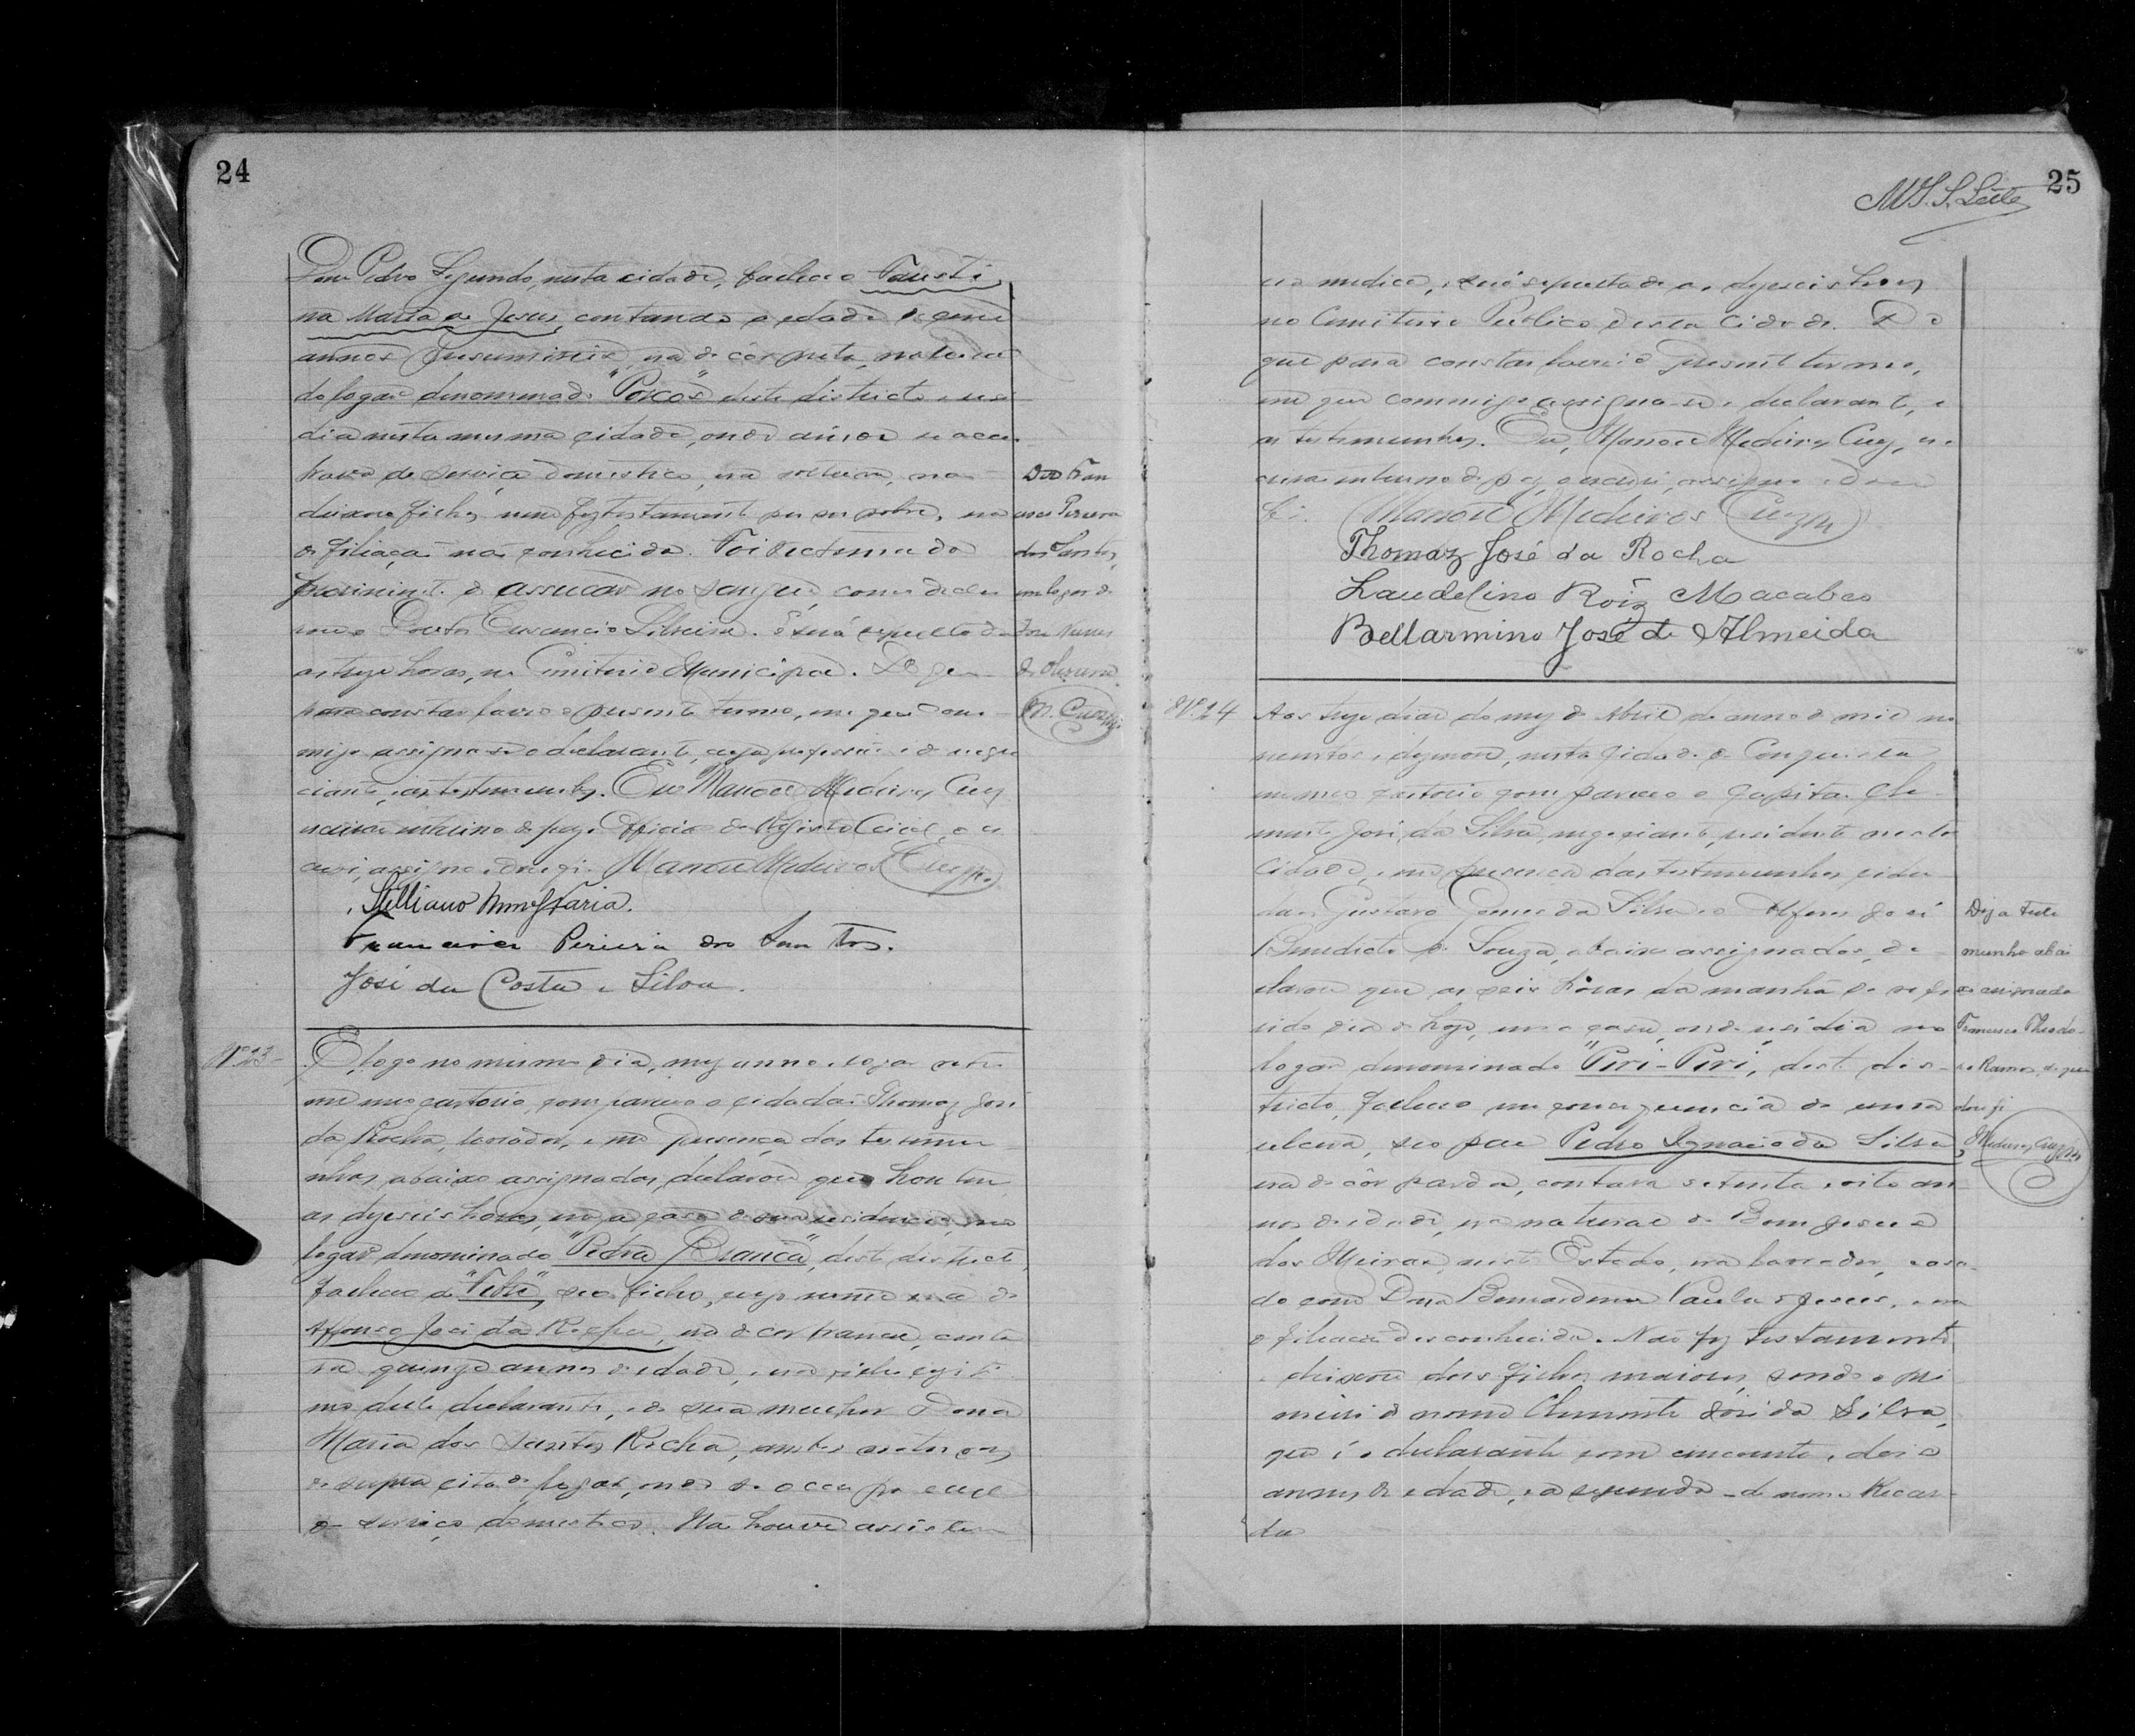 24
Dom Pedro Segundo, nesta cidade, falleceu Fausti
na Maria de Jesus, contando a edade de
annos presumiveis, era de côr preta, natural
do logar denominado "Poços" deste districto e resi
dia nesta mesma cidade, onde
de serviço domestico, era solteira, não
deixou filhos, nem fez testamento por ser pobre, era
de filiação não conhecida. Foi victimada
de assucar no sangue, como decla
rou o Doutor Silveira. E será sepultada
as treze horas, no Cemiterio Municipal. Do que
para constar lavro o presente termo, em que com
migo assigna-se o declarante, cuja profissão é de nego
ciante, e as testemunhas. Eu Manoel Medeiros Cruz
escrivão interino de paz e Official do Registo Civil, o es
crevi, assigno e dou fé. Manoel Medeiros Cruz
Stelliano Faria.
Francisco Pereira dos Santos.
José da Costa e Silva.
Digo Fran
cisco Pereira
dos Santos,
em logar de
José Nunes
de Oliveira
M. Cruz
Nº 23-
E, logo no mesmo dia, mez anno e logar retro
em meo cartorio, compareceu o cidadão Thomaz José
da Rocha, lavrador, e na presença das testemu
nhas abaixo assignadas, declarou que hontem
as dezeseis horas, na casa de sua residencia, no
logar denominado "Pedra Branca", deste districto,
falleceu de "Febre", seo filho, cujo nome era de
Affonso José da Rocha, era de cor branca, conta
va quinze annos de edade, e era filho legiti
mo delle declarante, e de sua mulher Dona
Maria dos Santos Rocha, ambos naturaes
do supra citado logar, onde se occupa ella
de serviço domestico. Não houve assisten
25
M. S. S. Leite
cia medica, e será sepultado as dezeseis horas
no Cemiterio Publico desta Cidade. Do
que para constar lavrei o presente termo,
em que commigo assigna-se o declarante, e
as testemunhas. Eu, Manoel Medeiros Cruz, es
crivão interino de paz, o escrevi, assigno e dou
fé. Manoel Medeiros Cruz
Thomaz José da Rocha
Laudelino Roiz Macabeo
Bellarmino José de Almeida
Nº 24
Aos treze dias do mez de Abril do anno de mil no
vecentos e dezenove, nesta Cidade de Conquista
em meo cartorio compareceo o Capitão Cle
mente José da Silva, negociante, residente nesta
Cidade, e na presença das testemunhas cida
dãos Gustavo Gomes da Silva e o Alferes José
Benedicto de Souza, abaixo assignados, de
clarou que as seis horas da manhã do refe
rido dia de hoje, em a casa, onde residia no
logar denominado "Piri-Piri", deste dis-
tricto, falleceo em consequencia de uma
ulcera, seo pae Pedro Ignacio da Silva,
era de côr parda, contava setenta e oito an
nos de edade, era natural de Bom Jesus
dos Meiras, neste Estado, era lavrador, casa-
do com Dona Bernardina Paula de Jesus, e era
de filiação desconhecida. Não fez testamento
e deixou dois filhos maiores, sendo o pri
meiro de nome Clemente José da Silva,
que é o declarante com cincoenta e dois
annos de edade, e a segunda de nome Ricar-
da
Digo a teste
munha abai
xo assignada
Francisco Theodo-
ro Ramos, do que
dou fé
Medeiros Cruz